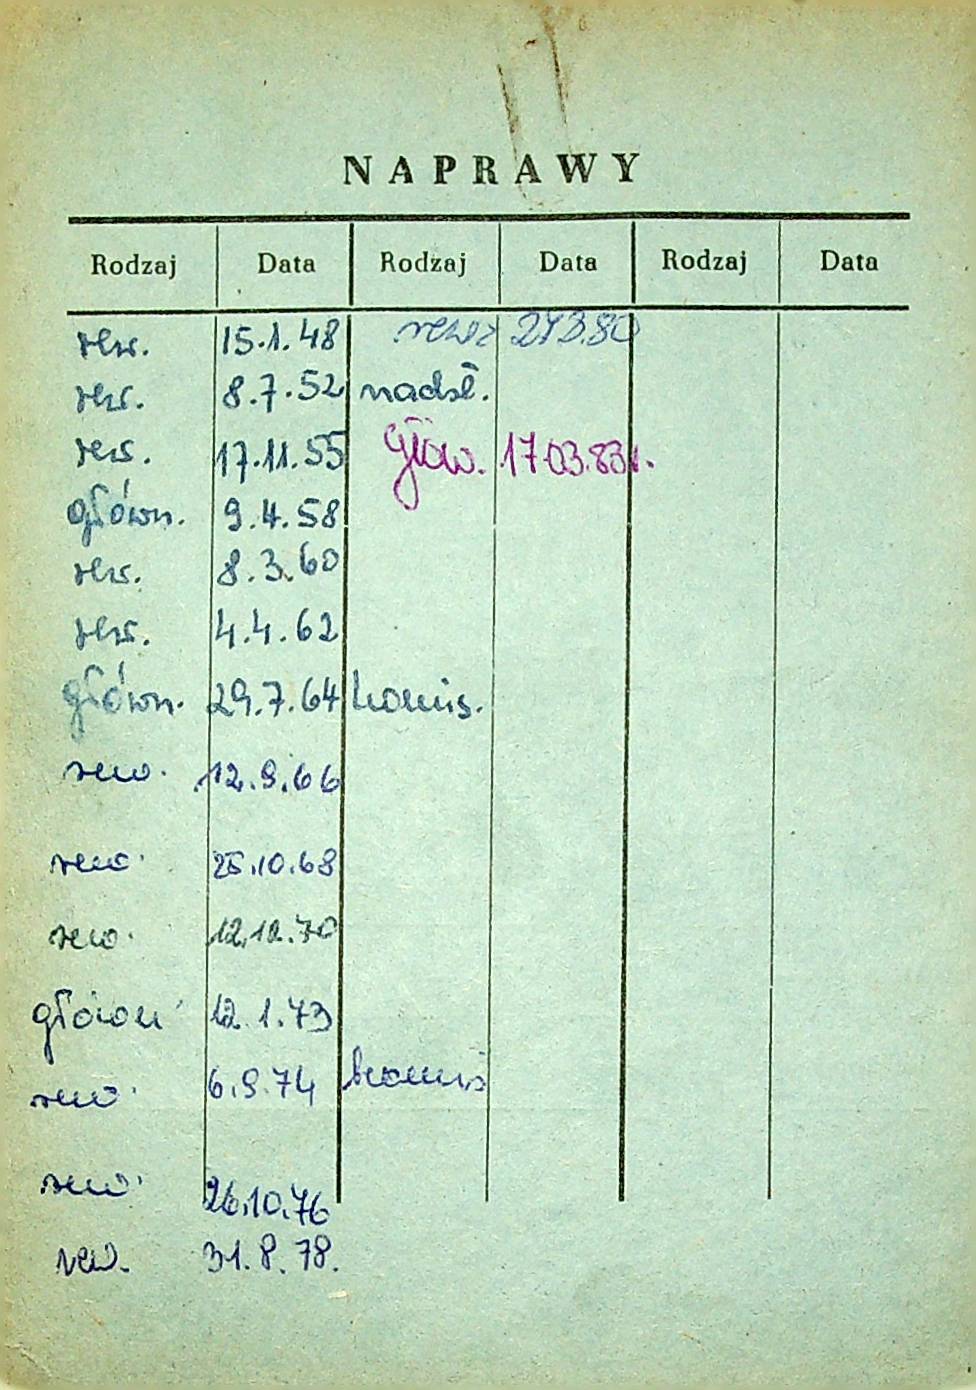 NAPRAWY
Rodzaj Data Rodzaj Data Rodzaj Data
rew. 15.1.48 rew. 27.3.80
rew. 8.7.52 nadsł.
rew. 17.11.55 główn. 17.03.83r.
główn. 9.4.58
rew. 8.3.60
rew. 4.4.62
główn. 29.7.64 komis.
rew. 12.9.66
rew. 25.10.68
rew. 12.12.70
główn 12.1.73
rew. 6.9.74 komis
rew. 26.10.76
rew. 31.8.78.